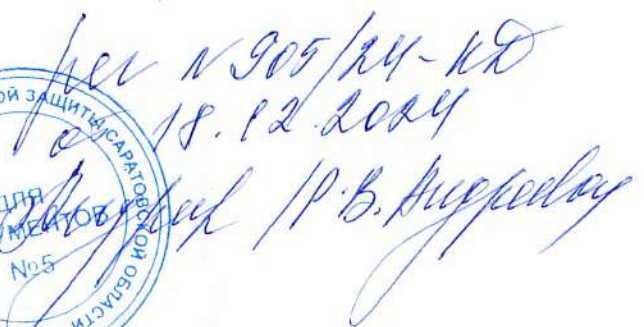 рег N 905/24-КД
от 18.12.2024
/Р.В. Андреева/
ОЙ ЗАЩИТЫ САРАТОВСКОЙ ОБЛАСТИ
ДЛЯ
№5